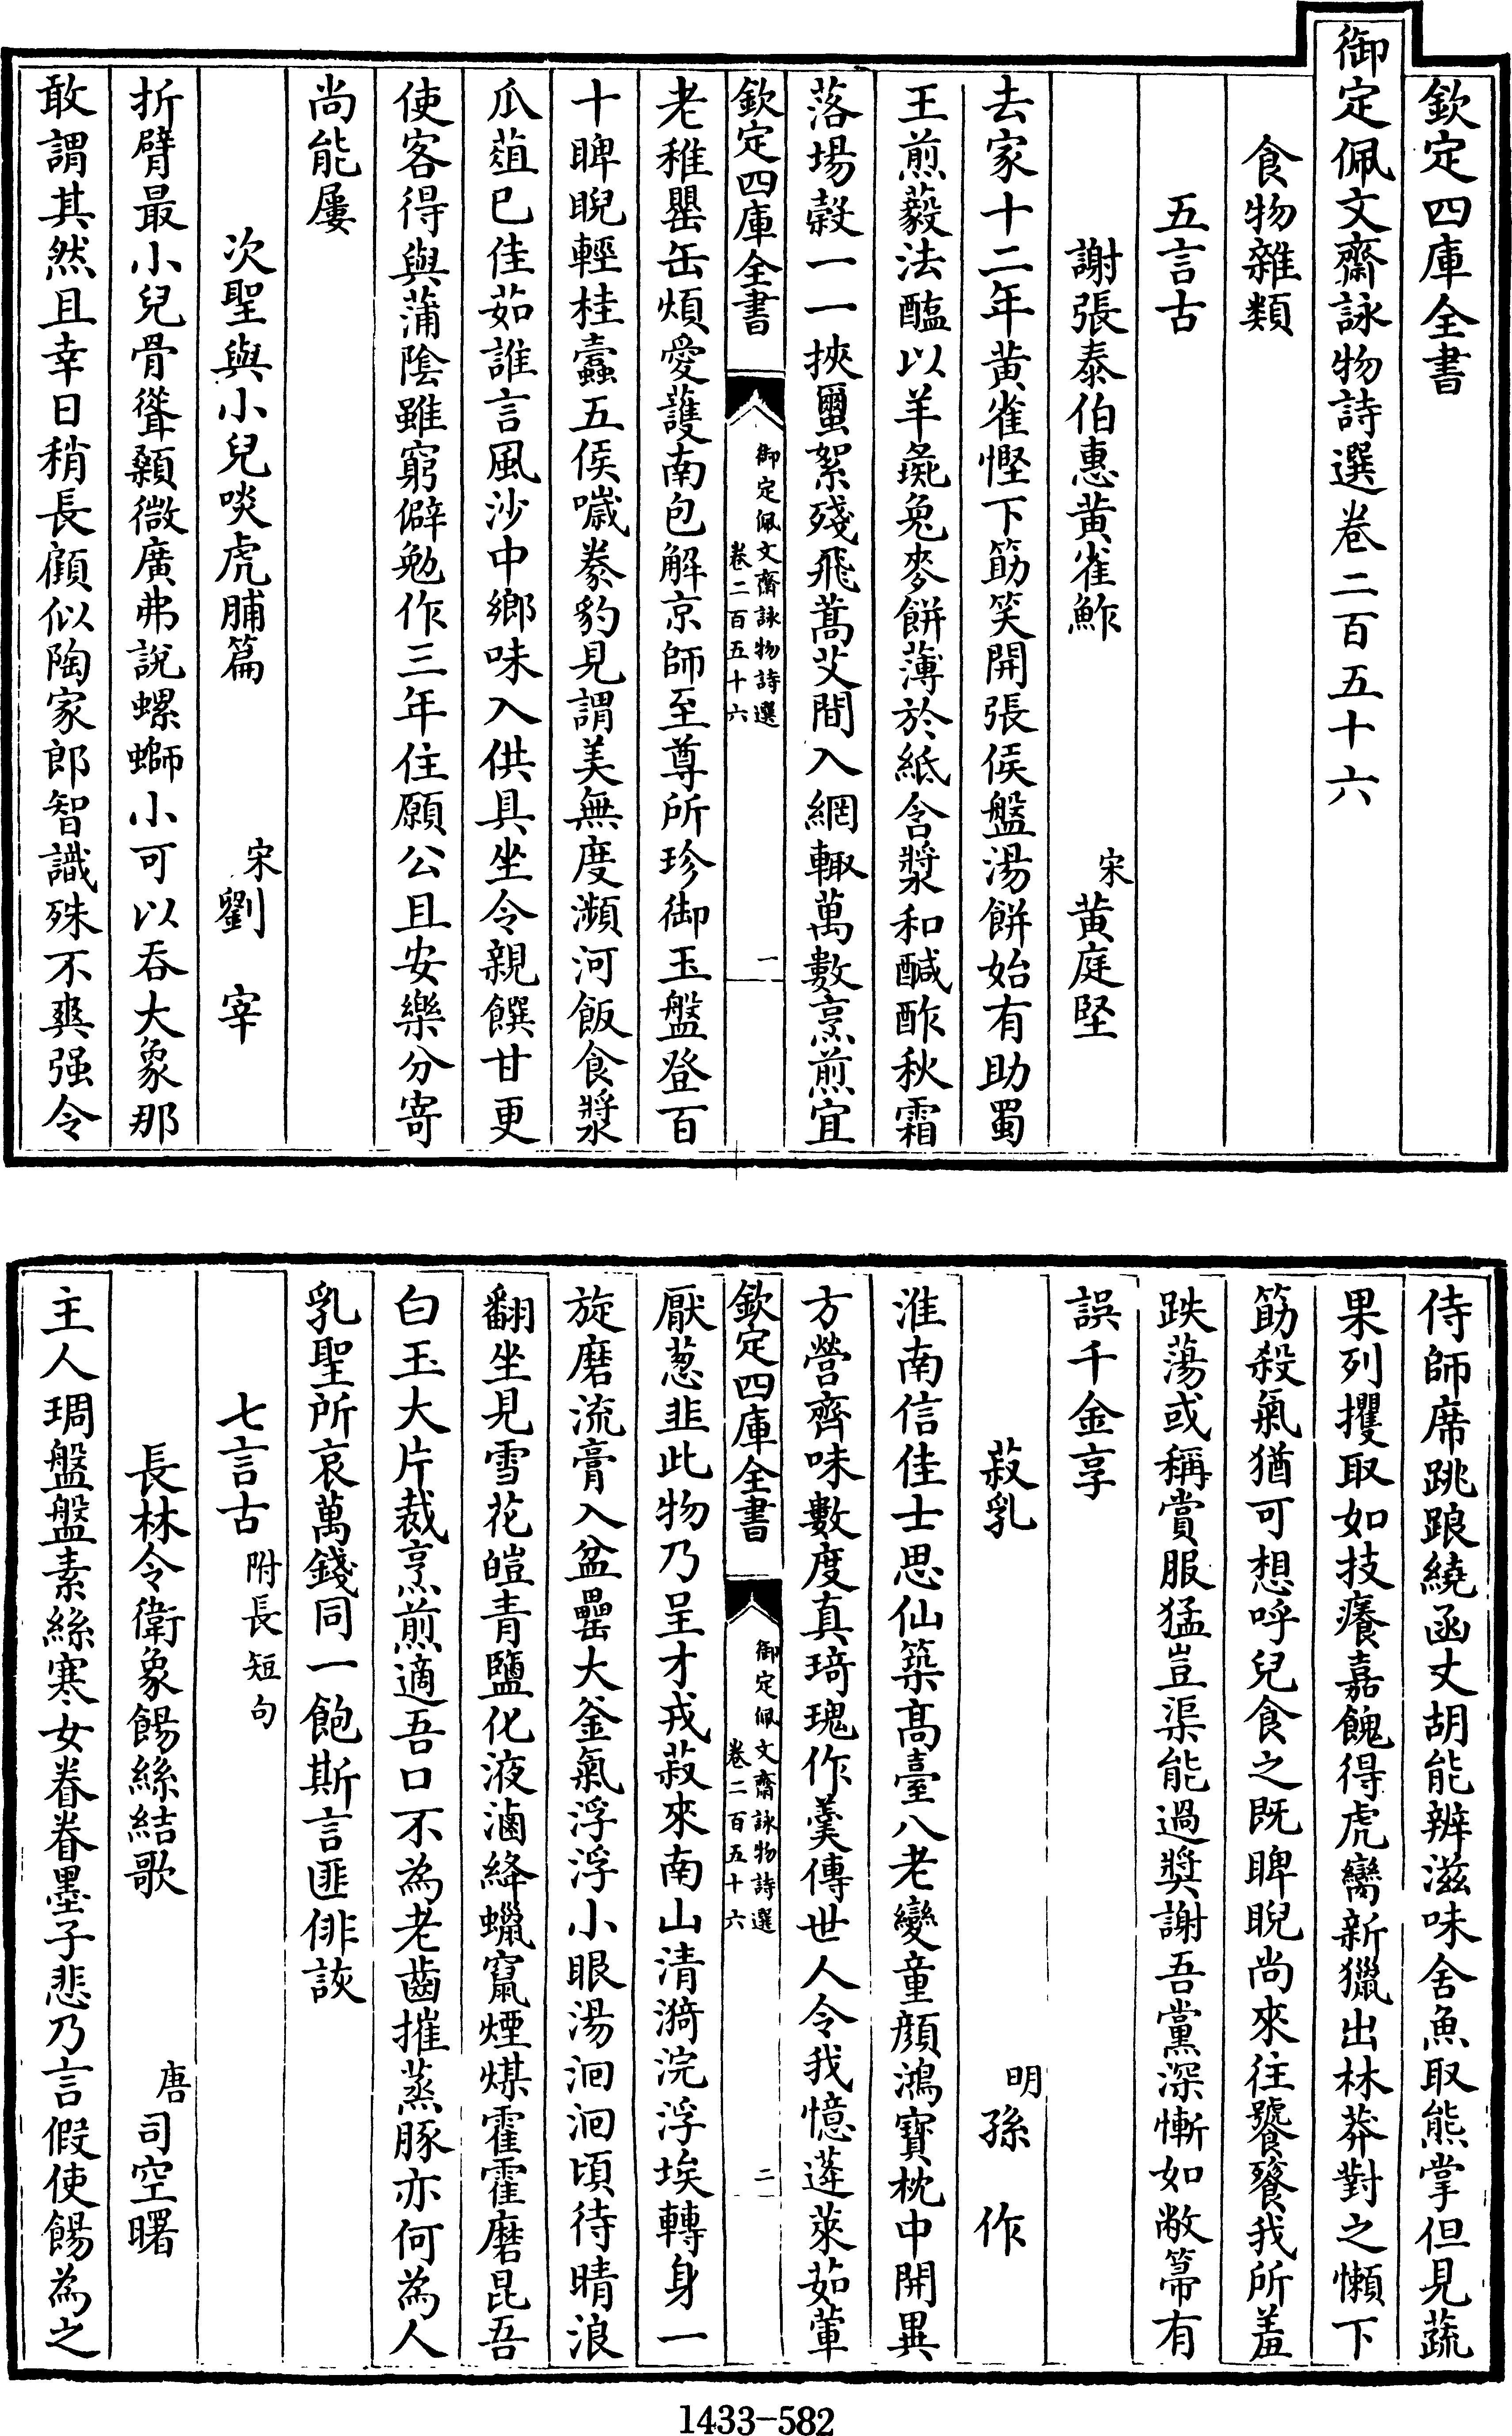 欽定四庫全書
御定佩文齋詠物詩選卷二百五十六
食物雜類
五言古
謝張泰伯惠黄雀鮓
宋黄庭堅
去家十二年黄雀慳下筯笑開張侯盤湯餅始有助蜀
王煎藙法醢以羊彘兔麥餅薄於紙含漿和醎酢秋霜
落場穀一一挾蠒絮殘飛蒿艾間入網輙萬數烹煎宜
欽定四庫全書
御定佩文齋詠物詩選
卷二百五十六
一
老稚罌缶煩愛護南包解京師至尊所珍御玉盤登百
十睥睨輕桂蠧五侯噦豢豹見謂美無度瀕河飯食漿
瓜葅已佳茹誰言風沙中鄉味入供具坐令親饌甘更
使客得與蒲陰雖窮僻勉作三年住願公且安樂分寄
尚能屢
次聖與小兒啖虎脯篇
宋劉宰
折臂最小兒骨聳顙微廣弗說螺螄小可以吞大象那
敢謂其然且幸日稍長顧似陶家郎智識殊不爽强令
侍師席跳踉繞函丈胡能辨滋味舍魚取熊掌但見蔬
果列攫取如技癢嘉餽得虎臠新獵出林莽對之懶下
筯殺氣猶可想呼兒食之既睥睨尚來往饕餮我所羞
跌蕩或稱賞服猛豈渠能過奬謝吾黨深慚如敝帚有
誤千金享
菽乳
明孫作
淮南信佳士思仙築髙臺八老變童顔鴻寳枕中開異
方營齊味數度真琦瑰作羮傳世人令我憶蓬萊茹葷
欽定四庫全書
御定佩文齋詠物詩選
卷二百五十六
二
厭葱韭此物乃呈才戎菽來南山清漪浣浮埃轉身一
旋磨流膏入盆罍大釜氣浮浮小眼湯洄洄頃待晴浪
翻坐見雪花皚青鹽化液滷絳蠟竄煙煤霍霍磨昆吾
白玉大片裁烹煎適吾口不為老齒摧蒸豚亦何為人
乳聖所哀萬錢同一飽斯言匪俳詼
七言古附長短句
長林令衛象餳絲結歌
唐司空曙
主人琱盤盤素絲寒女眷眷墨子悲乃言假使餳為之
1433-582